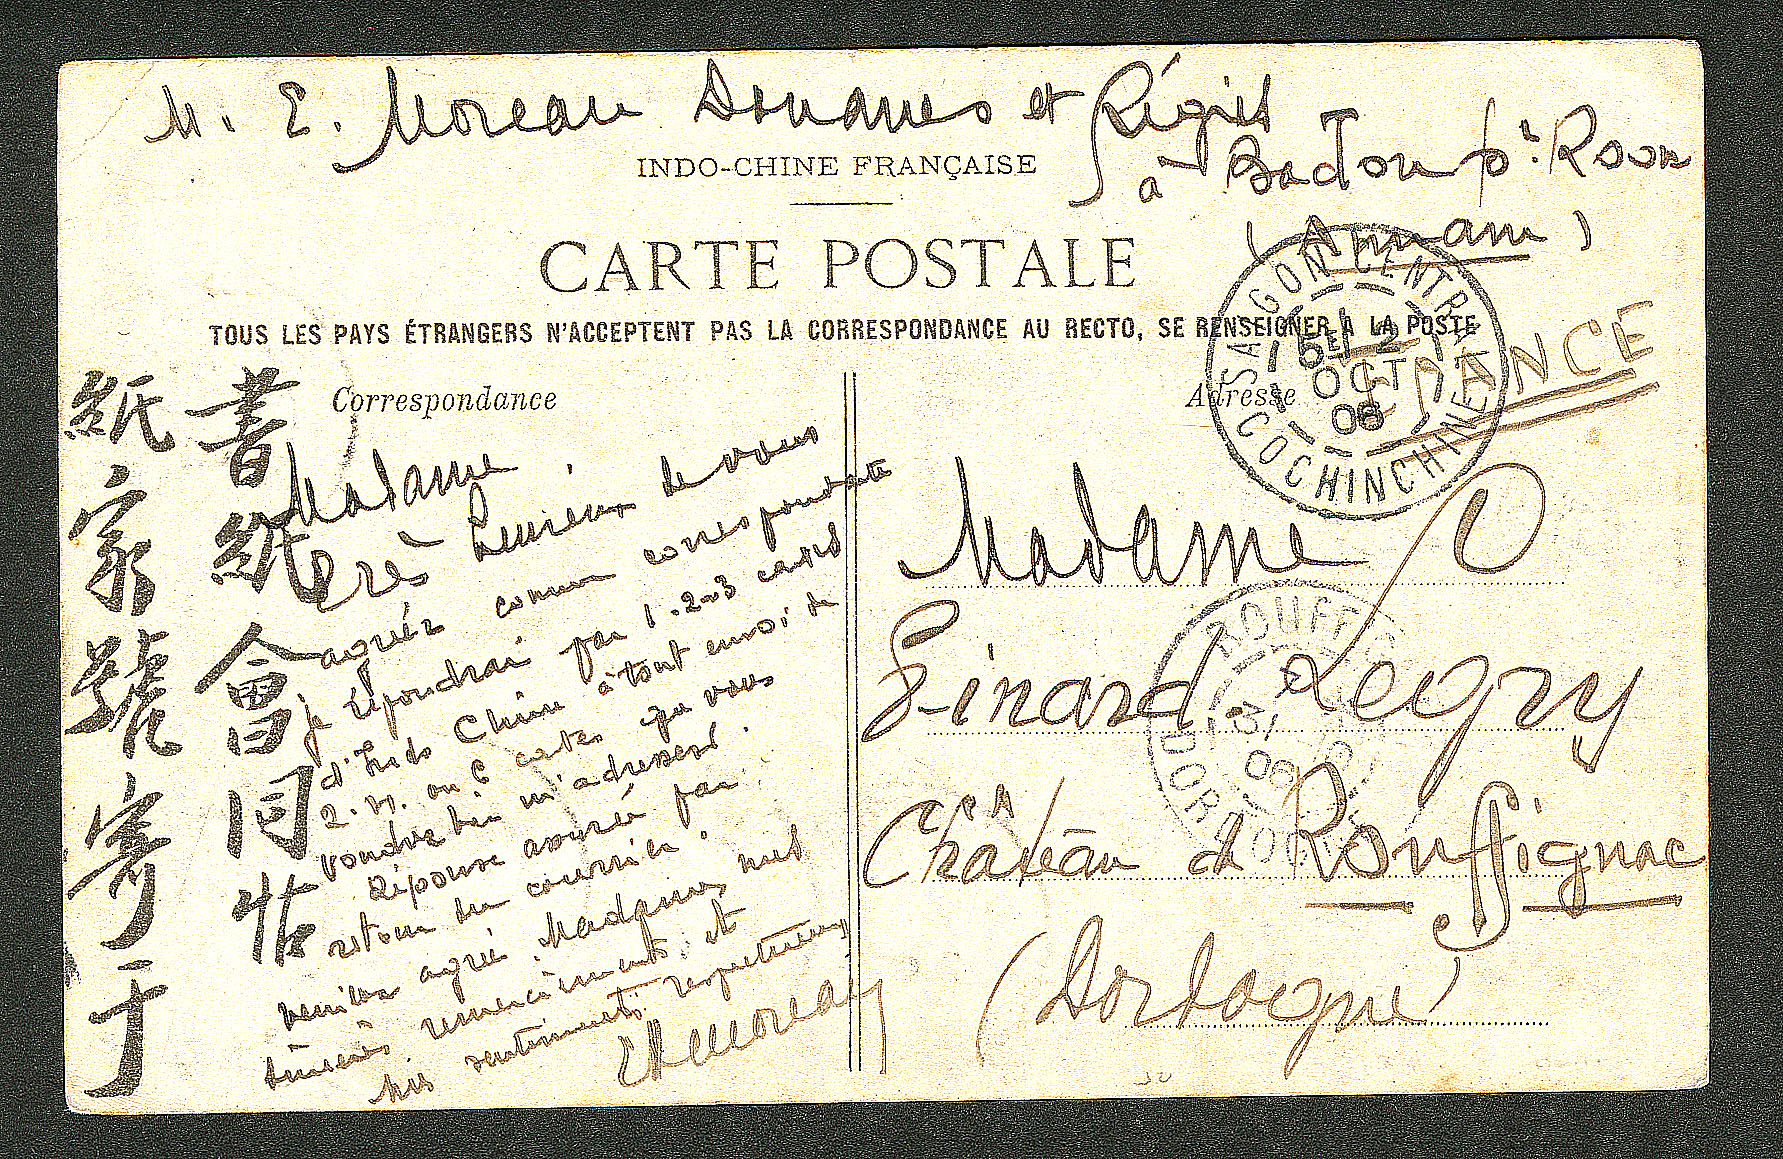 M. E. Moreau Douanes et Régies
à Badon pr. Roon
(Annam)
INDO-CHINE FRANÇAISE
CARTE POSTALE
TOUS LES PAYS ÉTRANGERS N'ACCEPTENT PAS LA CORRESPONDANCE AU RECTO, SE RENSEIGNER A LA POSTE
Correspondance
Madame
Très heureux de vous
agréer comme correspondante
je répondrai par 1.2 ou 3 cartes
d'Indo Chine à tout envoi de
cartes que vous
voudrez bien m'adresser.
Réponse assurée par
retour du courrier.
Veuillez agréer Madame, mes
sincères remerciements et
mes sentiments respectueux
EMoreau
書
紙
會
同
紙
家
號
寄
于
Adresse
FRANCE
SAIGON CENTRAL
OCT
06
COCHINCHINE
Madame
Pinard-Legry
Château de Rouffignac
(Dordogne)
31
06